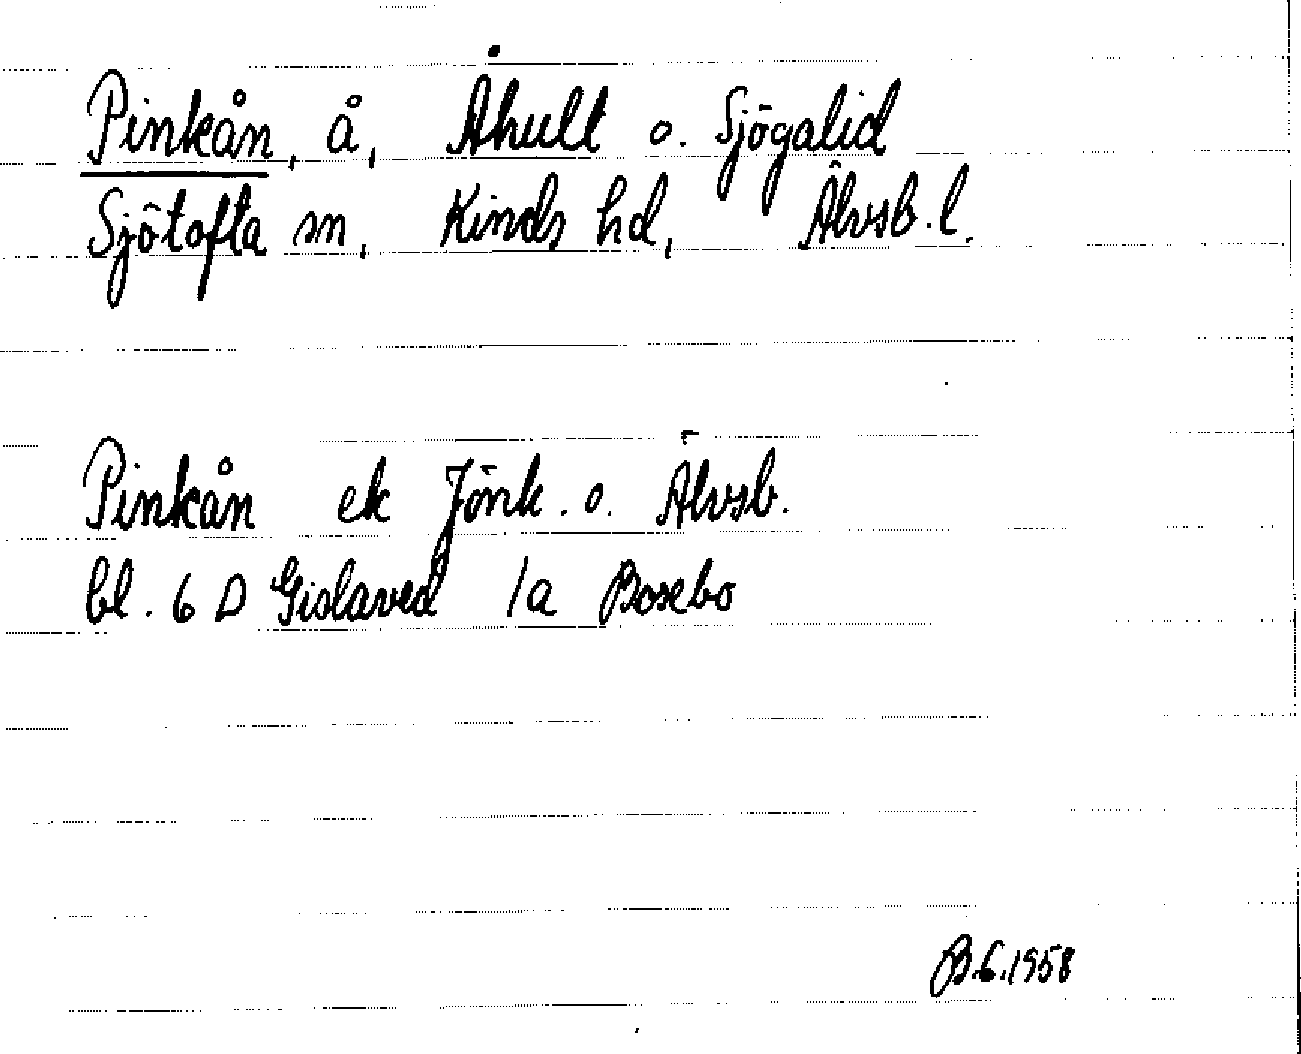 Pinkån, å, Åhult o. Sjögalid
Sjötofta sn, Kinds hd, Älvsb. l.
Pinkån ek Jönk. o. Älvsb.
bl. 6 D Gislaved 1a Bosebo
B.G. 1958